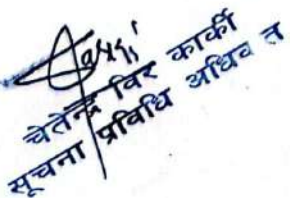 चेतेन्द्र विर कार्की
सूचना प्रविधि अधिव त